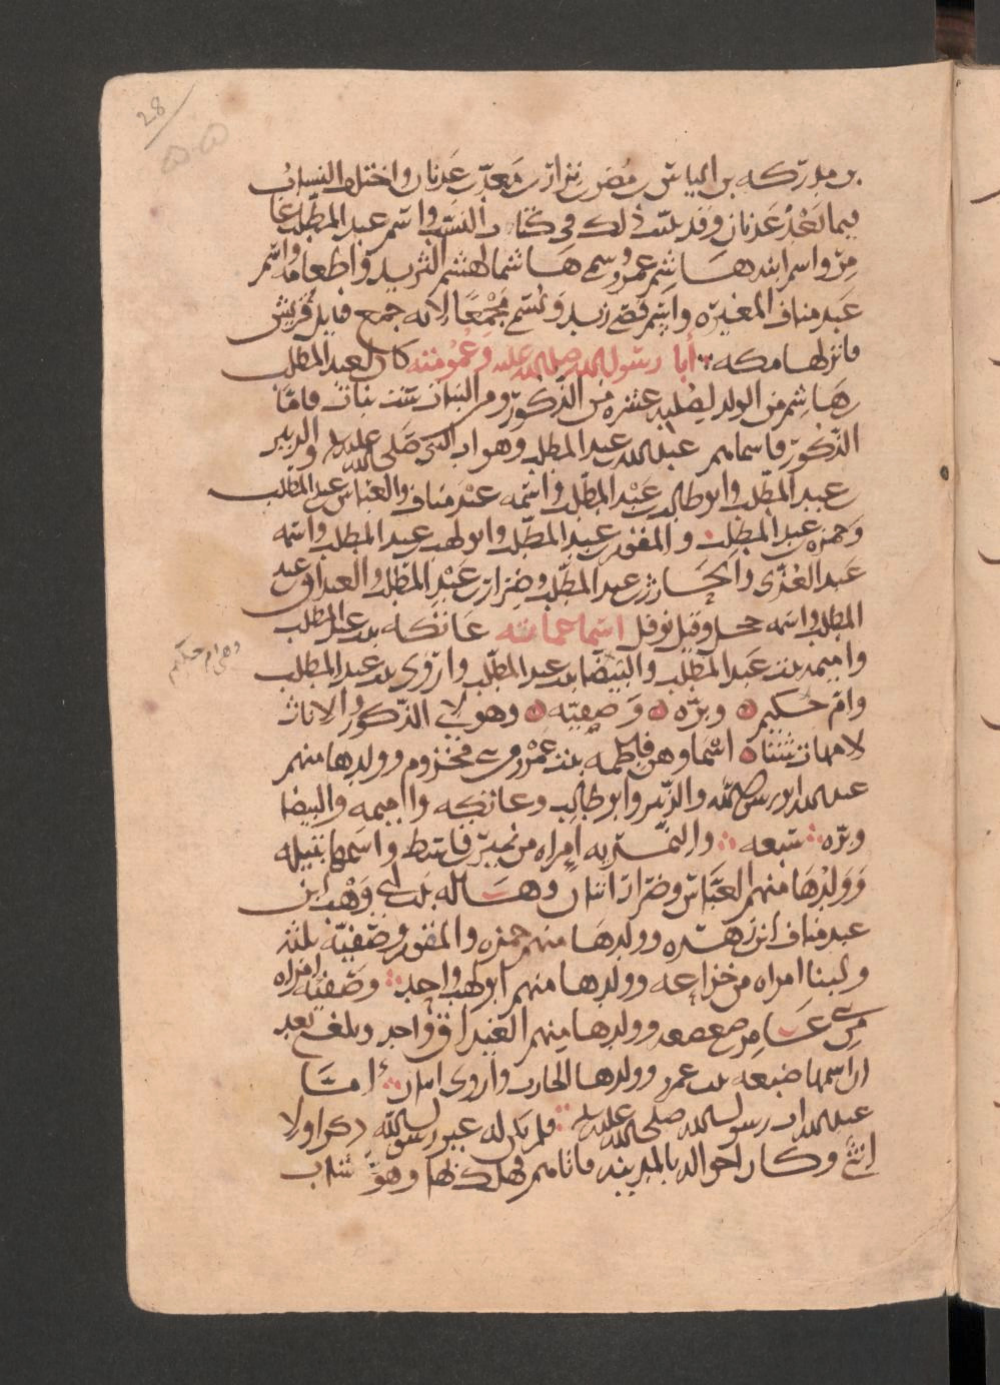 28
بن مدركه بن الياس بن مضر بن نزار بن معد بن عدنان واختلف النساب
فيما بعد عدنان وقد بينت ذلك في كتاب النسب واسم عبد المطلب عا
مر واسم ابيه هاشم عمرو وسمي هاشما لهشم الثريد واطعامه واسم
عبد مناف المغيره واسم قصي زيد ويسمى مجمعا لانه جمع قبايل قريش
فانزلها مكه أبا رسول الله صلى الله عليه وعمومته كان لعبد المطلب
بن هاشم من الولد لصلبه عشره من الذكور ومن البنات ست بنات فاما
الذكور فاسماهم عبد الله بن عبد المطلب وهو ابو النبي صلى الله عليه والزبير
بن عبد المطلب وابو طالب بن عبد المطلب واسمه عبد مناف والعباس بن عبد المطلب
وحمزه بن عبد المطلب والمقوم بن عبد المطلب وابو لهب بن عبد المطلب واسمه
عبد العزى والحارث بن عبد المطلب وضرار بن عبد المطلب والغيداق بن عبد
المطلب واسمه حجل وقيل نوفل اسما عماته عاتكه بنت عبد المطلب
واميمه بنت عبد المطلب والبيضا بنت عبد المطلب واروى بنت عبد المطلب
وهي ام حكيم
وام حكيم وبره وصفيه وهولاي الذكور والاناث
لامهات شتى اسماوهن فاطمه بنت عمرو من بني مخزوم وولدها منهم
عبد الله ابو رسول الله والزبير وابو طالب وعاتكه واميمه والبيضا
وبره سبعه والنمريه امراه من نمير بن قاسط واسمها نتيله
وولدها منهم العباس وضرار اثنان وهاله بنت اهيب بن
عبد مناف بن زهره وولدها منهم حمزه والمقوم وصفيه ثلثه
ولبنا امراه من خزاعه وولدها منهم ابو لهب واحد وصفيه امراه
من بني عامر بن صعصعه وولدها منهم الغيداق واحد وبلغني بعد
ان اسمها ضبعه بنت عمرو وولدها الحارث واروى اثنان امّا
عبد الله ابو رسول الله صلى الله عليه فلم يكن له غير رسول الله ذكرا ولا
انثى وكان اخواله بالمدينه فاتاهم فهلك بها وهو شاب